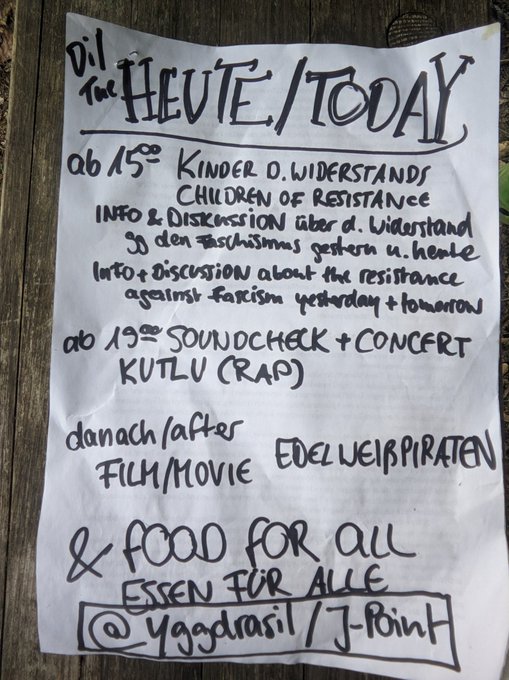 Di/
Tue HEUTE/TODAY
ab 15⁰⁰ KINDER D. WIDERSTANDS
CHILDREN OF RESISTANCE
INFO & DISKUSSION über d. Widerstand
gg den Faschismus gestern u. heute
Info + Discustion about the resistance
against Fascism yesterday + tomorrow
ab 19⁰⁰ SOUNDCHECK + CONCERT
KUTLU (RAP)
danach/after
FILM/MOVIE EDELWEIßPIRATEN
& FOOD FOR all
ESSEN FÜR ALLE
@ Yggdrasil / J-Point